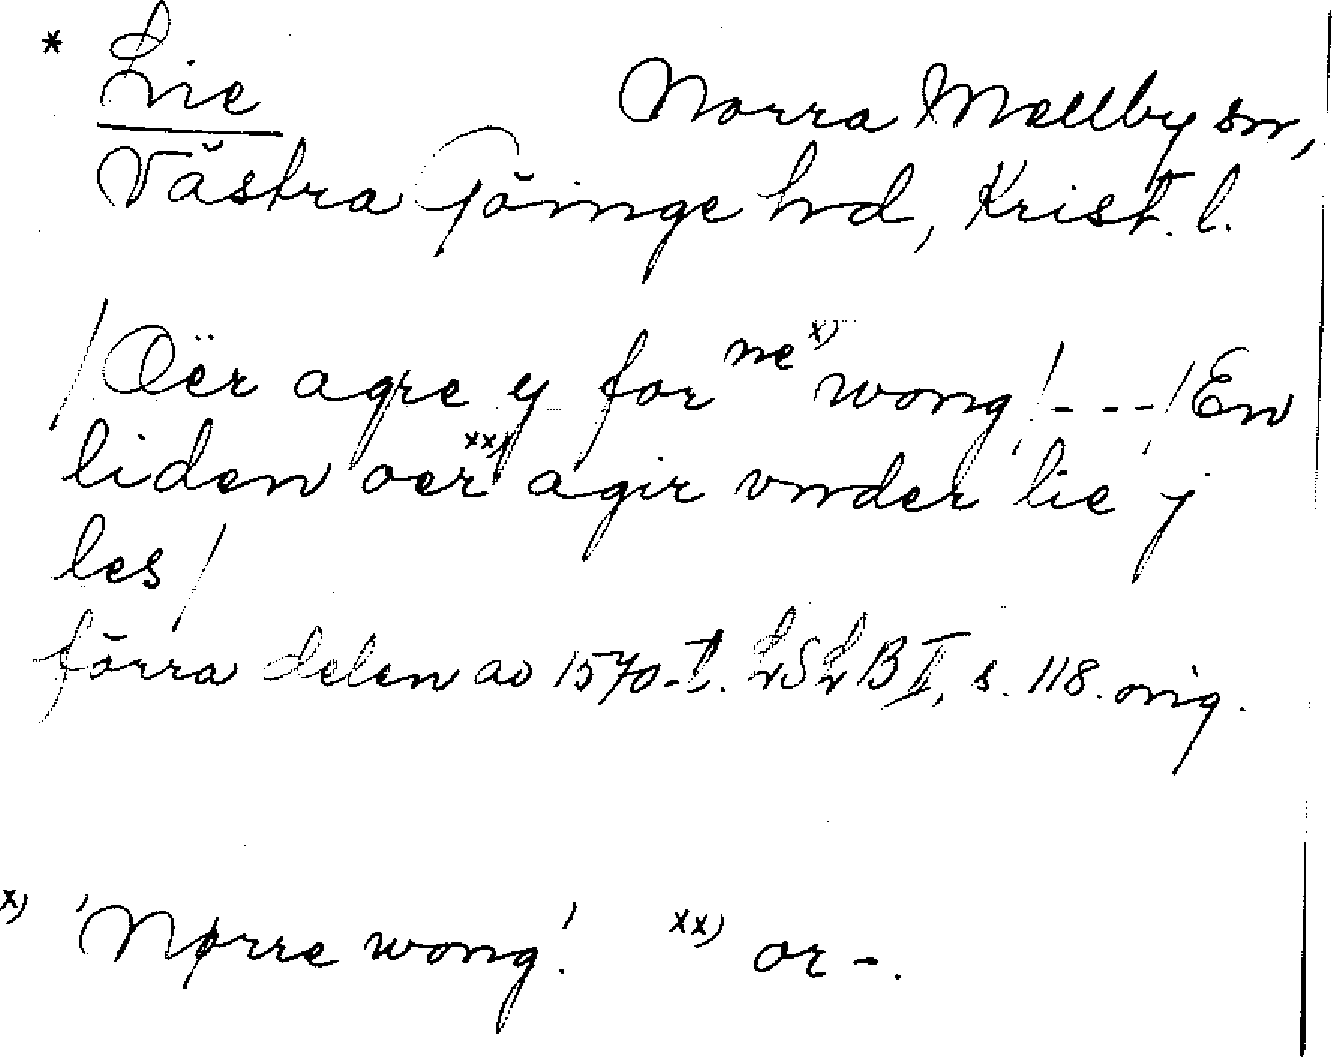 * Lie
Norra Mellby sn,
Västra Göinge hd, Krist. l.
/Oër agre y for ne x) wong/---/En
liden oer xx) agir vnder lie j
les/
förra delen av 1570-t. LSLB II, s. 118. orig.
x) 'Nørre wong'. xx) or-.